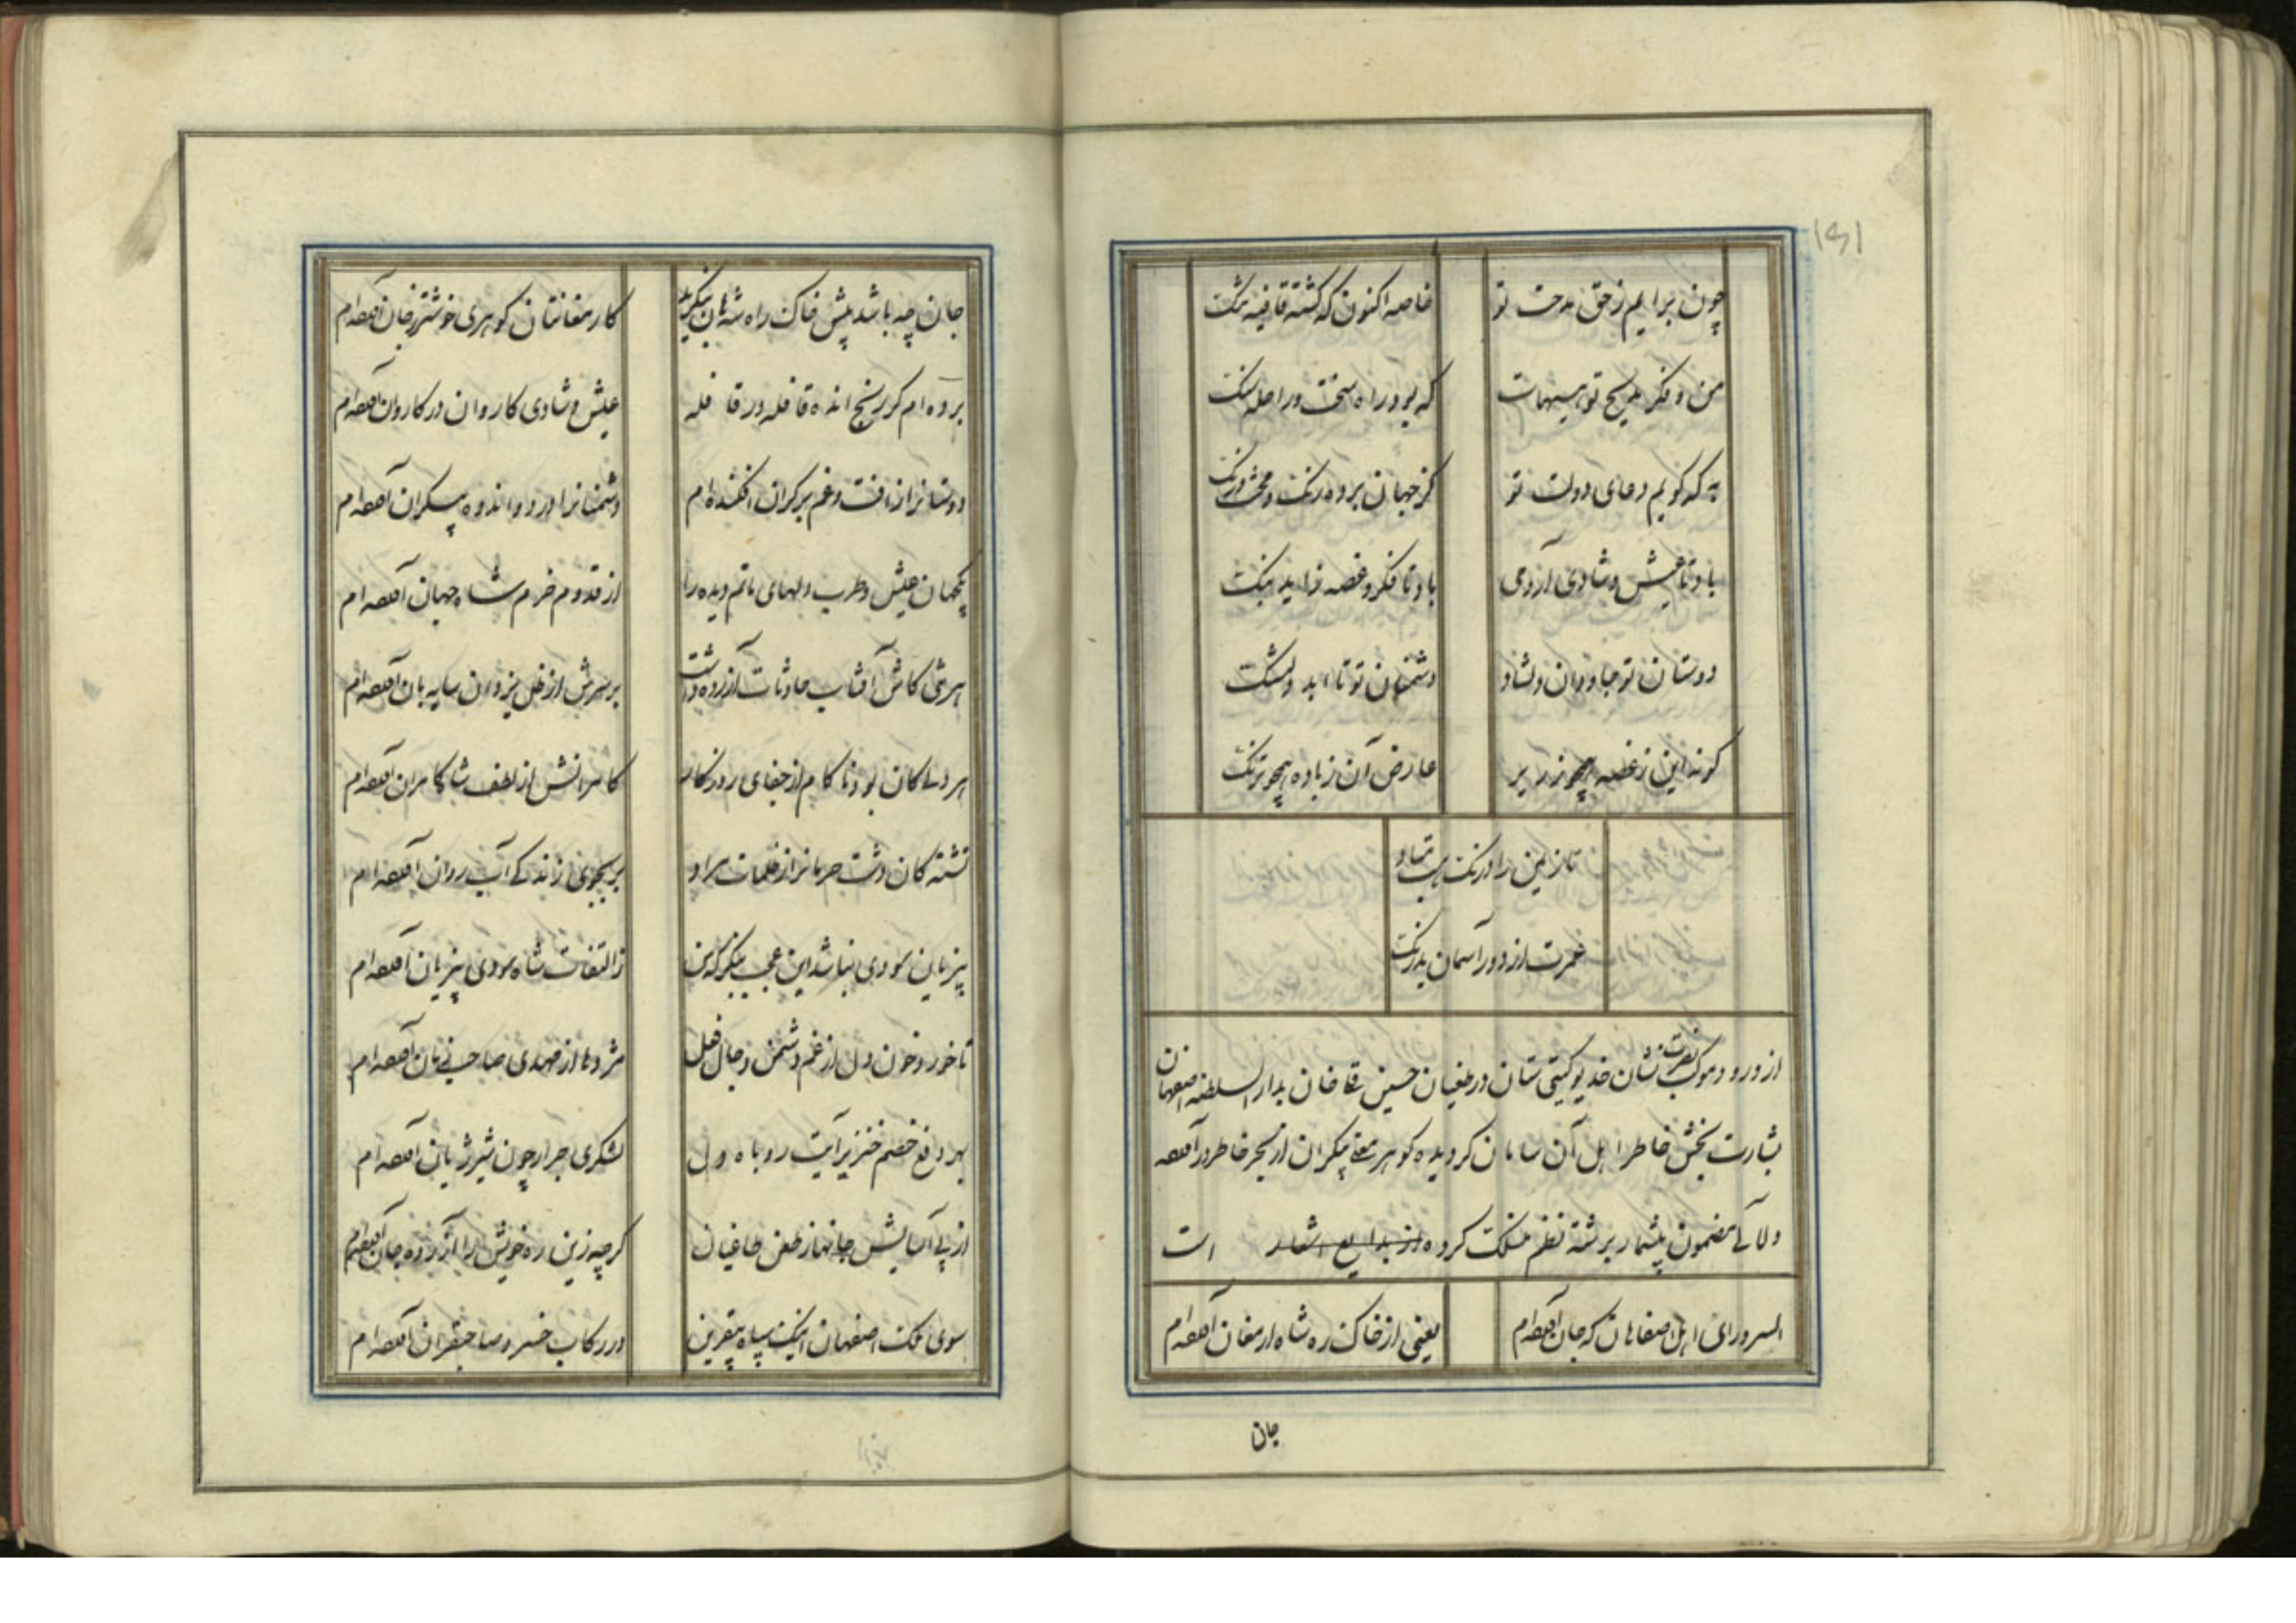 ۱۵۱
چون برایم ز حق مدحت تو خاصه اکنون که گشته قافیه تنگ
من و فکر مدیح تو هیهات که بود راه سخت و راحله لنگ
به که گویم دعای دولت تو کز جهان برده رنگ
باد تا عیش و شادی آرد می باد تا فکر و غصه زاید بنگ
دوستان تو جاودان دلشاد دشمنان تو تا ابد دلتنگ
گونه این ز غصه همچو زریر عارض آن ز باده همچو ترنگ
تا زمین را درنگ هست مباد
عمرت از دور آسمان بدرنگ
از ورود موکب نصرت نشان خدیو گیتی ستان در طغیان حسین قلیخان بدار السلطنه اصفهان
بشارت بخش خاطر اهل آن سامان گردیده گوهر معنی بیکران از بحر خاطر درآمده
و لآلی مضمون بیشمار برشته نظم منسلک کرده از بدایع اشعار است
السرور ای اهل اصفاهان که جان آورده‌ام یعنی از خاک ره شاه ارمغان آورده‌ام
جان
جان چه باشد پیش خاک راه شه هان بنگرید کارمغانتان گوهری خوشتر ز جان آورده‌ام
برده‌ام گر رنج انده قافله در قافله عیش و شادی کاروان در کاروان آورده‌ام
دوستانرا ز آفت و غم بر کران افکنده‌ام دشمنانرا درد و اندوه بیکران آورده‌ام
یکجهان عیش و طرب دلهای ماتم دیده را از قدوم خرم شاه جهان آورده‌ام
هر تنی کاش آفتاب حادثات آزرده داشت بر سرش از ظل یزدان سایه بان آورده‌ام
هر دلی کان بود ناکام از جفای روزگار کامرانش از لطف شاه کامران آورده‌ام
تشنه کان دشت حرمانرا ز ظلمات مراد بر بجوی زندگی آب روان آورده‌ام
بیزیان سودی نباشد این عجب بنگر که من ز التفات شاه سودی بیزیان آورده‌ام
تا خورد خون دل از غم دشمن دجال فعل مژدها از مهدی صاحب زمان آورده‌ام
بهر دفع خصم خنزیر آیت روباه دل لشکری جرار چون شیر ژیان آورده‌ام
از پی آسایش جانها ز طعن طاغیان گر چه زین ره خویش را آزرده جان آورده‌ام
سوی ملک اصفهان اینک سپاه بیقرین در رکاب خسرو صاحبقران آورده‌ام